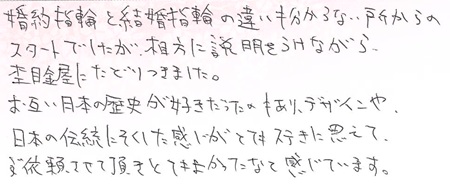 婚約指輪と結婚指輪の違いも分からない所からの
スタートでしたが、相方に説明をうけながら、
杢目金屋にたどりつきました。
お互い日本の歴史が好きだったのもあり、デザインや、
日本の伝統にそくした感じがとてもステキに思えて、
ご依頼させて頂きとてもよかったなと感じています。